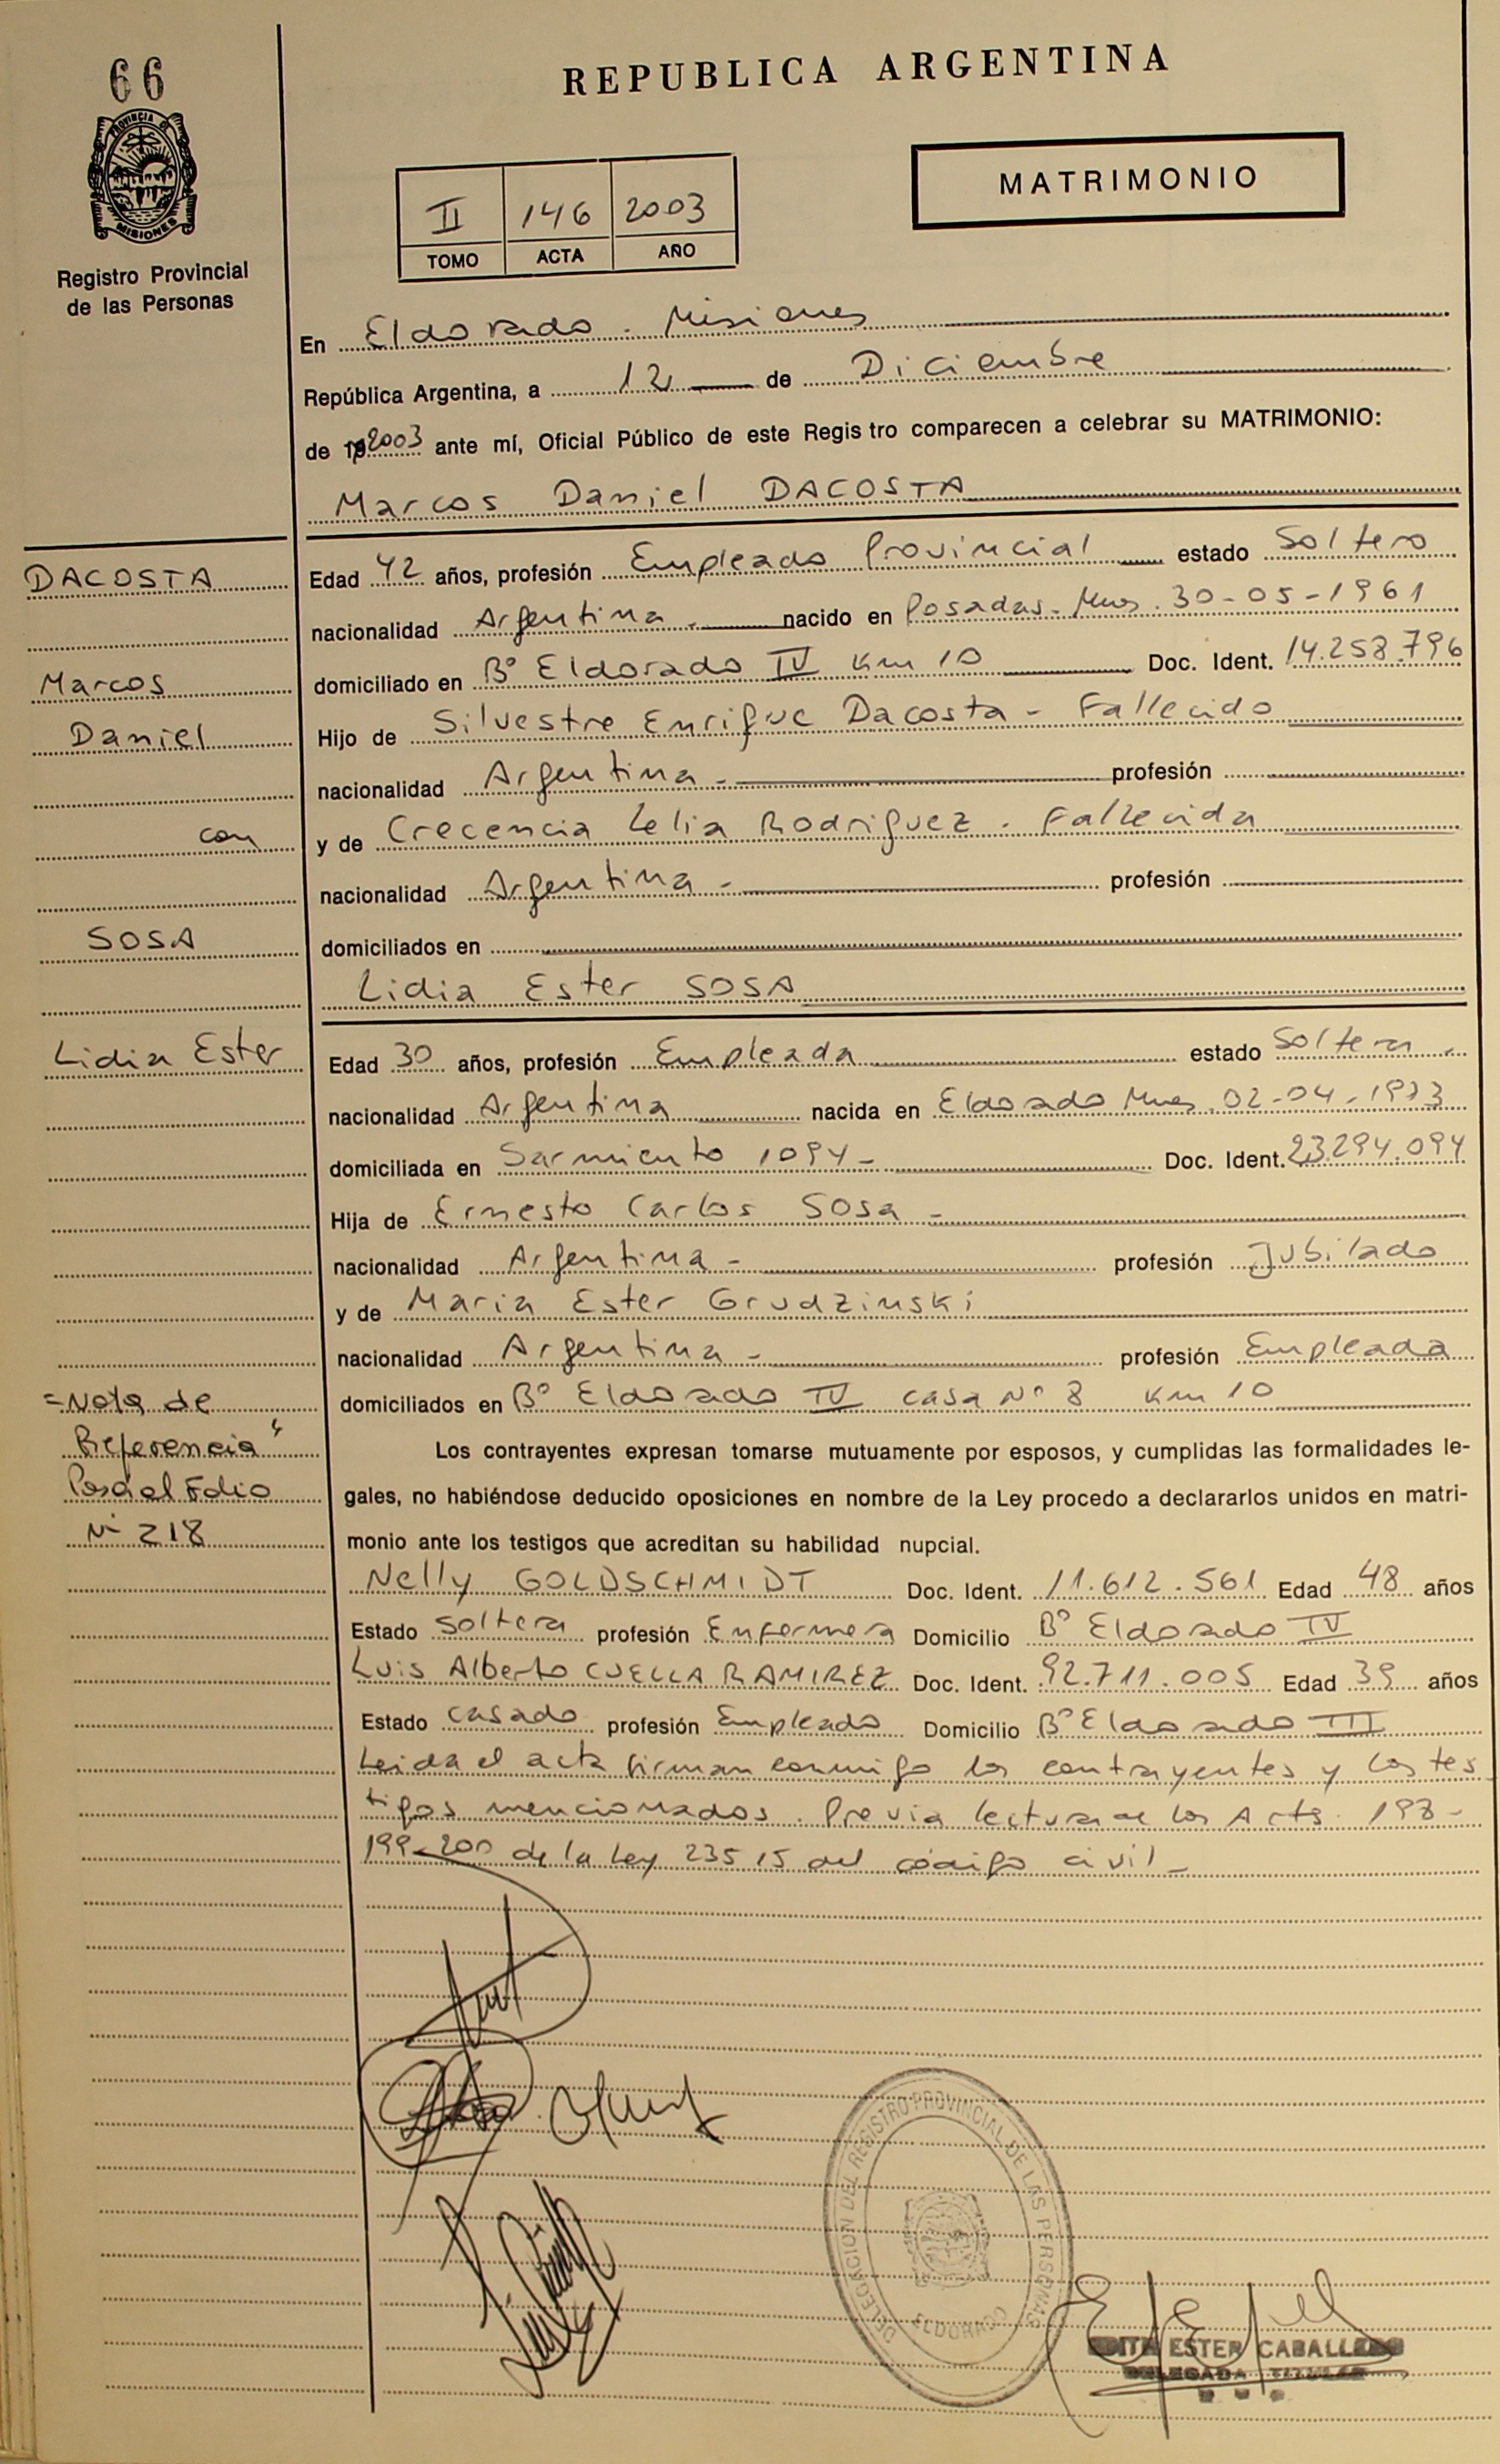 66
PROVINCIA DE
MISIONES
Registro Provincial
de las Personas
REPUBLICA ARGENTINA
II 146 2003
TOMO ACTA AÑO
MATRIMONIO
En Eldorado - Misiones
República Argentina, a 12 de Diciembre
de 192003 ante mí, Oficial Público de este Registro comparecen a celebrar su MATRIMONIO:
Marcos Daniel DACOSTA
DACOSTA
Marcos
Daniel
con
SOSA
Lidia Ester
Edad 42 años, profesión Empleado Provincial estado Soltero
nacionalidad Argentina - nacido en Posadas - Mnes. 30-05-1961
domiciliado en Bº Eldorado IV Km 10 Doc. Ident. 14.258.796
Hijo de Silvestre Enrique Dacosta - Fallecido
nacionalidad Argentina - profesión
y de Crecencia Lelia Rodriguez - Fallecida
nacionalidad Argentina - profesión
domiciliados en
Lidia Ester SOSA
Edad 30 años, profesión Empleada estado Soltera -
nacionalidad Argentina nacida en Eldorado Mnes. 02-04-1973
domiciliada en Sarmiento 1094 - Doc. Ident. 23.294.094
Hija de Ernesto Carlos Sosa -
nacionalidad Argentina - profesión Jubilado
y de Maria Ester Grudzinski
nacionalidad Argentina - profesión Empleada
domiciliados en Bº Eldorado IV casa Nº 8 Km 10
=Nota de
Referencia"
Pasa al Folio
Nº 218
Los contrayentes expresan tomarse mutuamente por esposos, y cumplidas las formalidades le-
gales, no habiéndose deducido oposiciones en nombre de la Ley procedo a declararlos unidos en matri-
monio ante los testigos que acreditan su habilidad nupcial.
Nelly GOLDSCHMIDT Doc. Ident. 11.612.561 Edad 48 años
Estado Soltera profesión Enfermera Domicilio Bº Eldorado IV
Luis Alberto CUELLA RAMIREZ Doc. Ident. 92.711.005 Edad 39 años
Estado casado profesión Empleado Domicilio Bº Eldorado III
Leida el acta firman conmigo los contrayentes y los tes
tigos mencionados. Previa lectura de los Arts. 198-
199-200 de la Ley 23515 del código civil -
DELEGACION DEL REGISTRO PROVINCIAL DE LAS PERSONAS
ELDORADO
EDITH ESTER CABALLERO
DELEGADA TITULAR